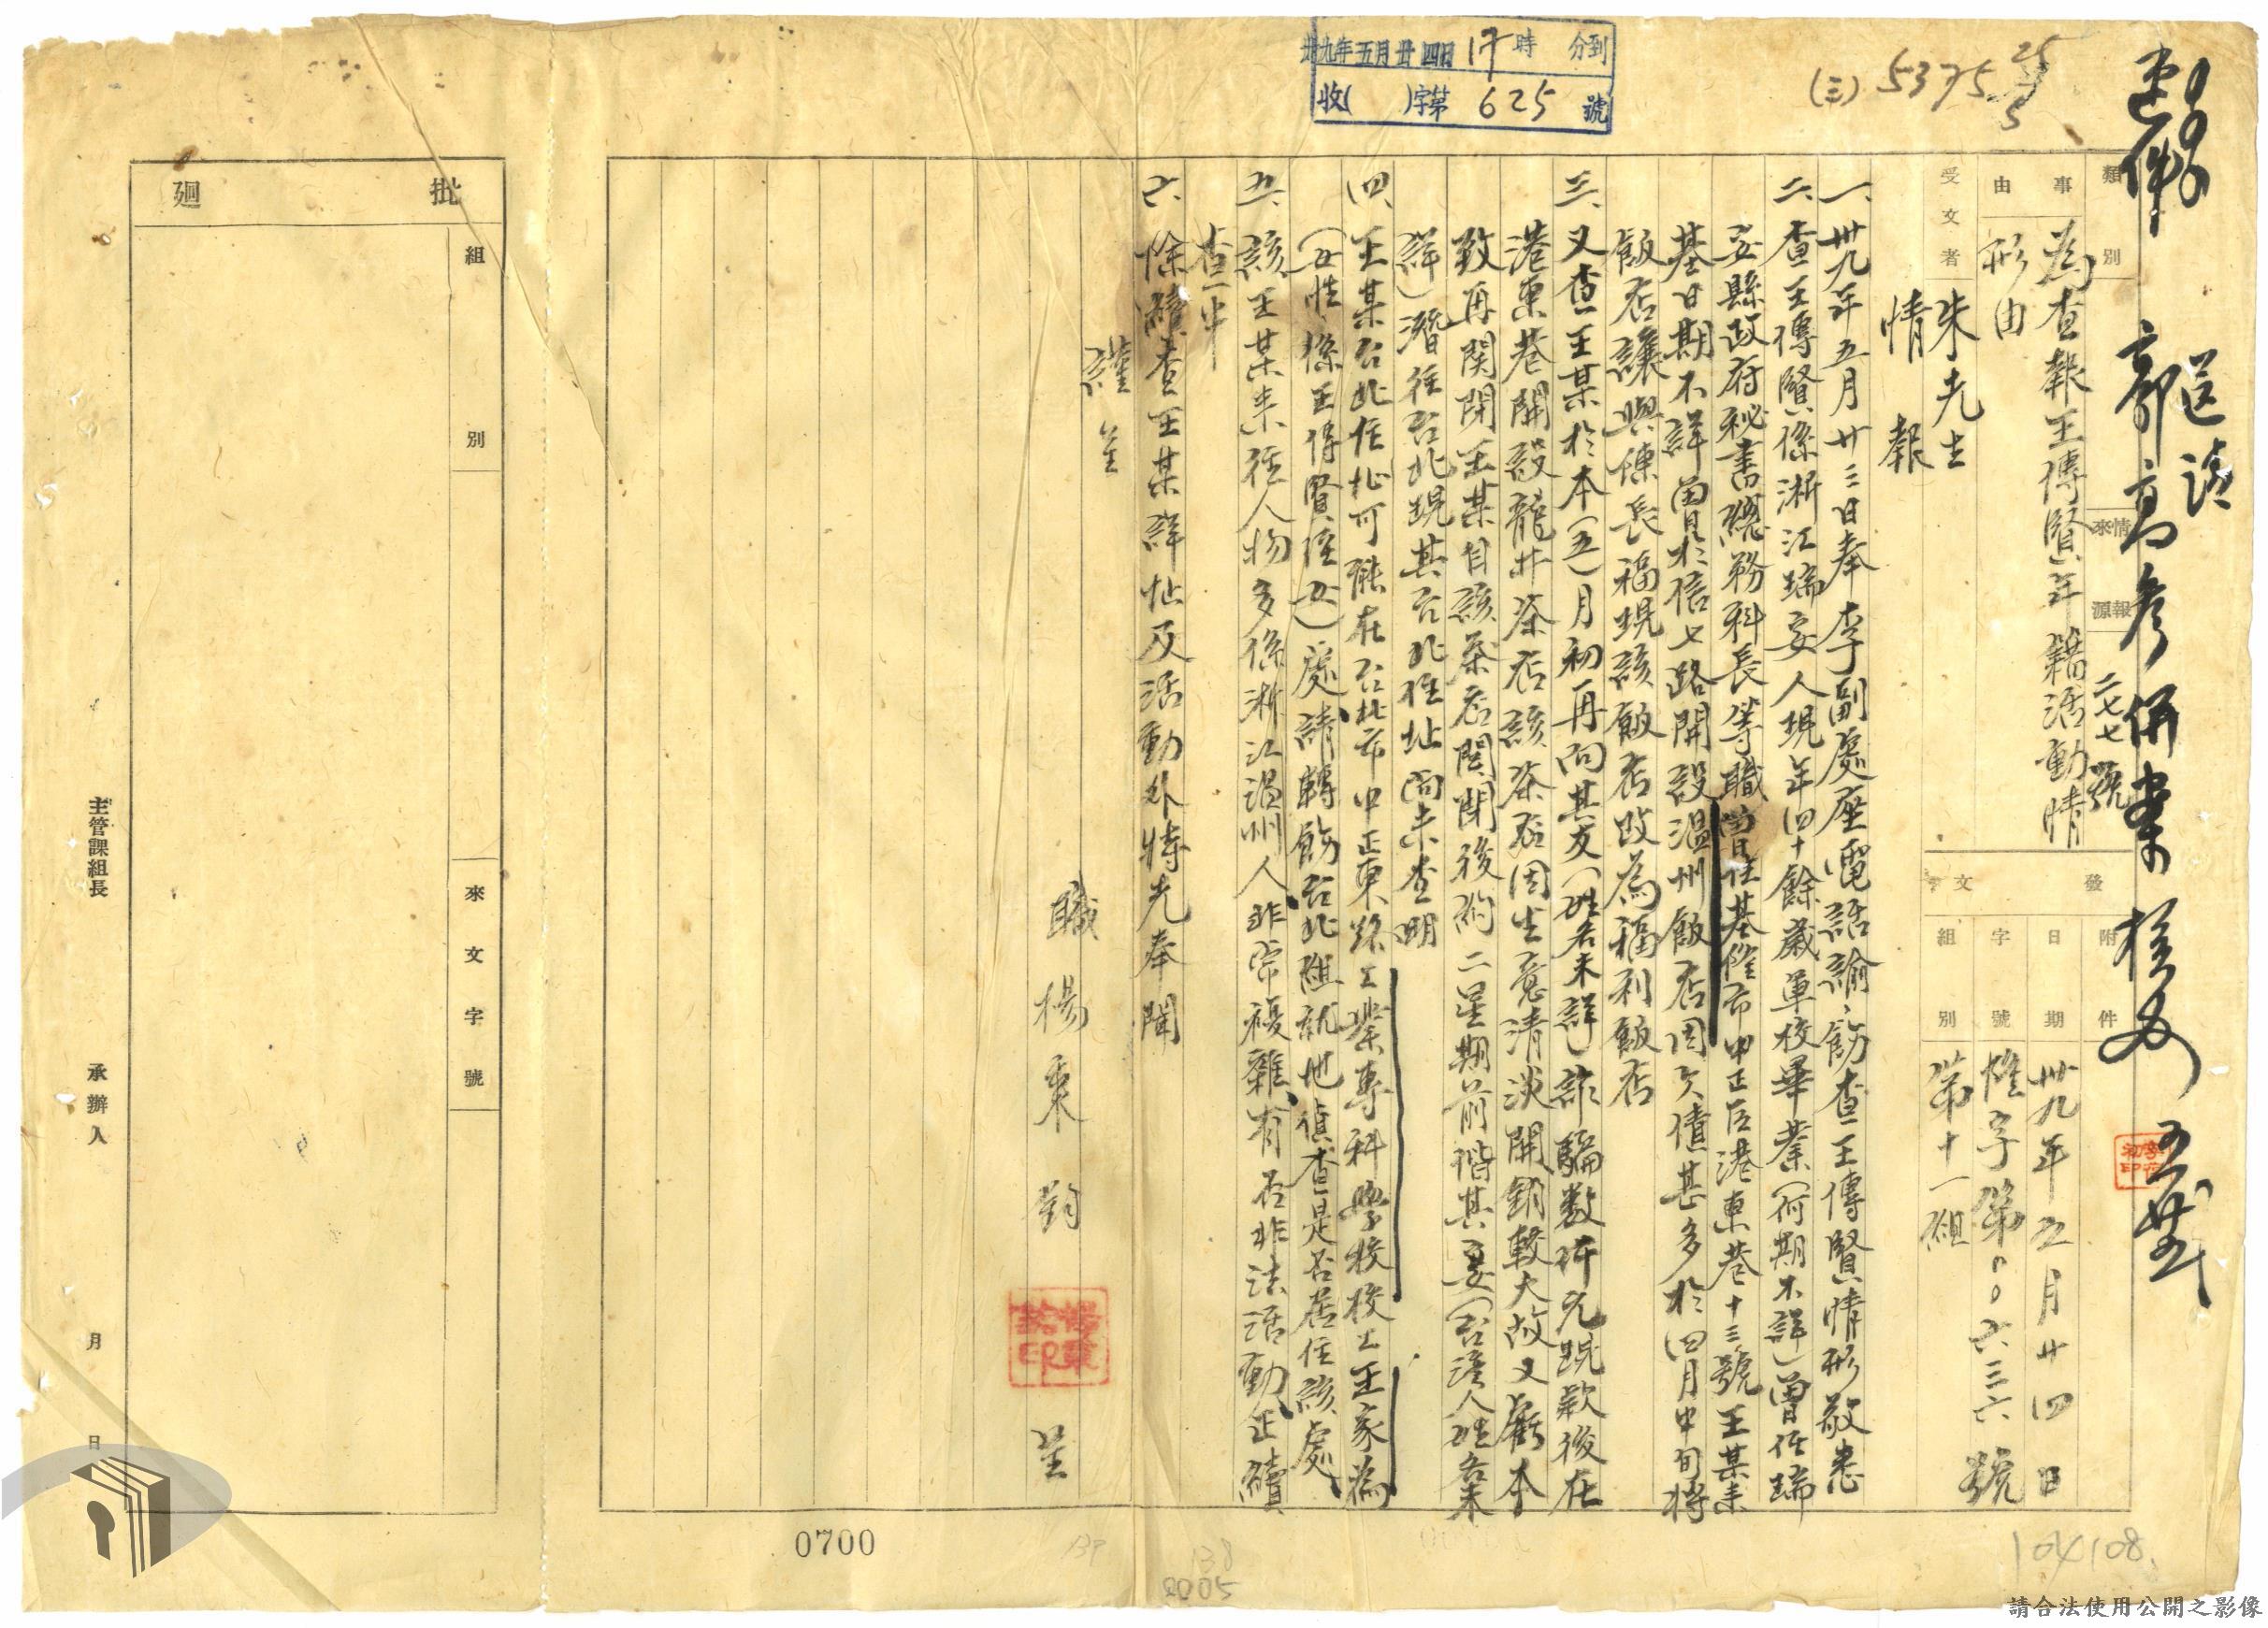 卅九年五月廿四日17時 分到
收( )字第625號
(三)5375 25/5
速件
送請
郭高參併案核辦 五、廿五
類別
情報來源 二七七號
事由
為查報王傳賢年籍活動情
形由
受文者
朱先生
情報
發文
附件
日期 卅九年五月廿四日
字號 惟字第00六三六號
組別 第十一組
一、卅九年五月廿三日奉李副處座電話諭飭查王傳賢情形敬悉
二、查王傳賢係浙江瑞安人現年四十餘歲軍校畢業(何期不詳)曾任瑞
安縣政府秘書總務科長等職曾住基隆市中正區港東巷十三號王某來
基日期不詳曾於信七路開設溫州飯店因欠債甚多於四月中旬將
飯店讓與陳長福現該飯店改為福利飯店
三、又查王某於本(五)月初再向其友(姓名未詳)詐騙数仟元現款後在
港東巷開設龍井茶店該茶店因生意清淡開銷較大故又虧本
致再関閉王某自該茶店関閉後約二星期前偕其妻(台灣人姓名未
詳)潛往台北現其台北住址尚未查明
四、王某台北住址可能在台北市中正東路工業專科學校校工王家為
(女性係王傳賢侄女)處請轉飭台北組就地偵查是否居住該處
五、該王某来往人物多係浙江溫州人非常複雜有否非法活動正續
查中
六、除續查王某詳址及活動外特先奉聞
謹呈
職楊秉鈞呈
批迴
組別
來文字號
主管課組長
承辦人
月 日
0700
139
138
0005
104108
請合法使用公開之影像